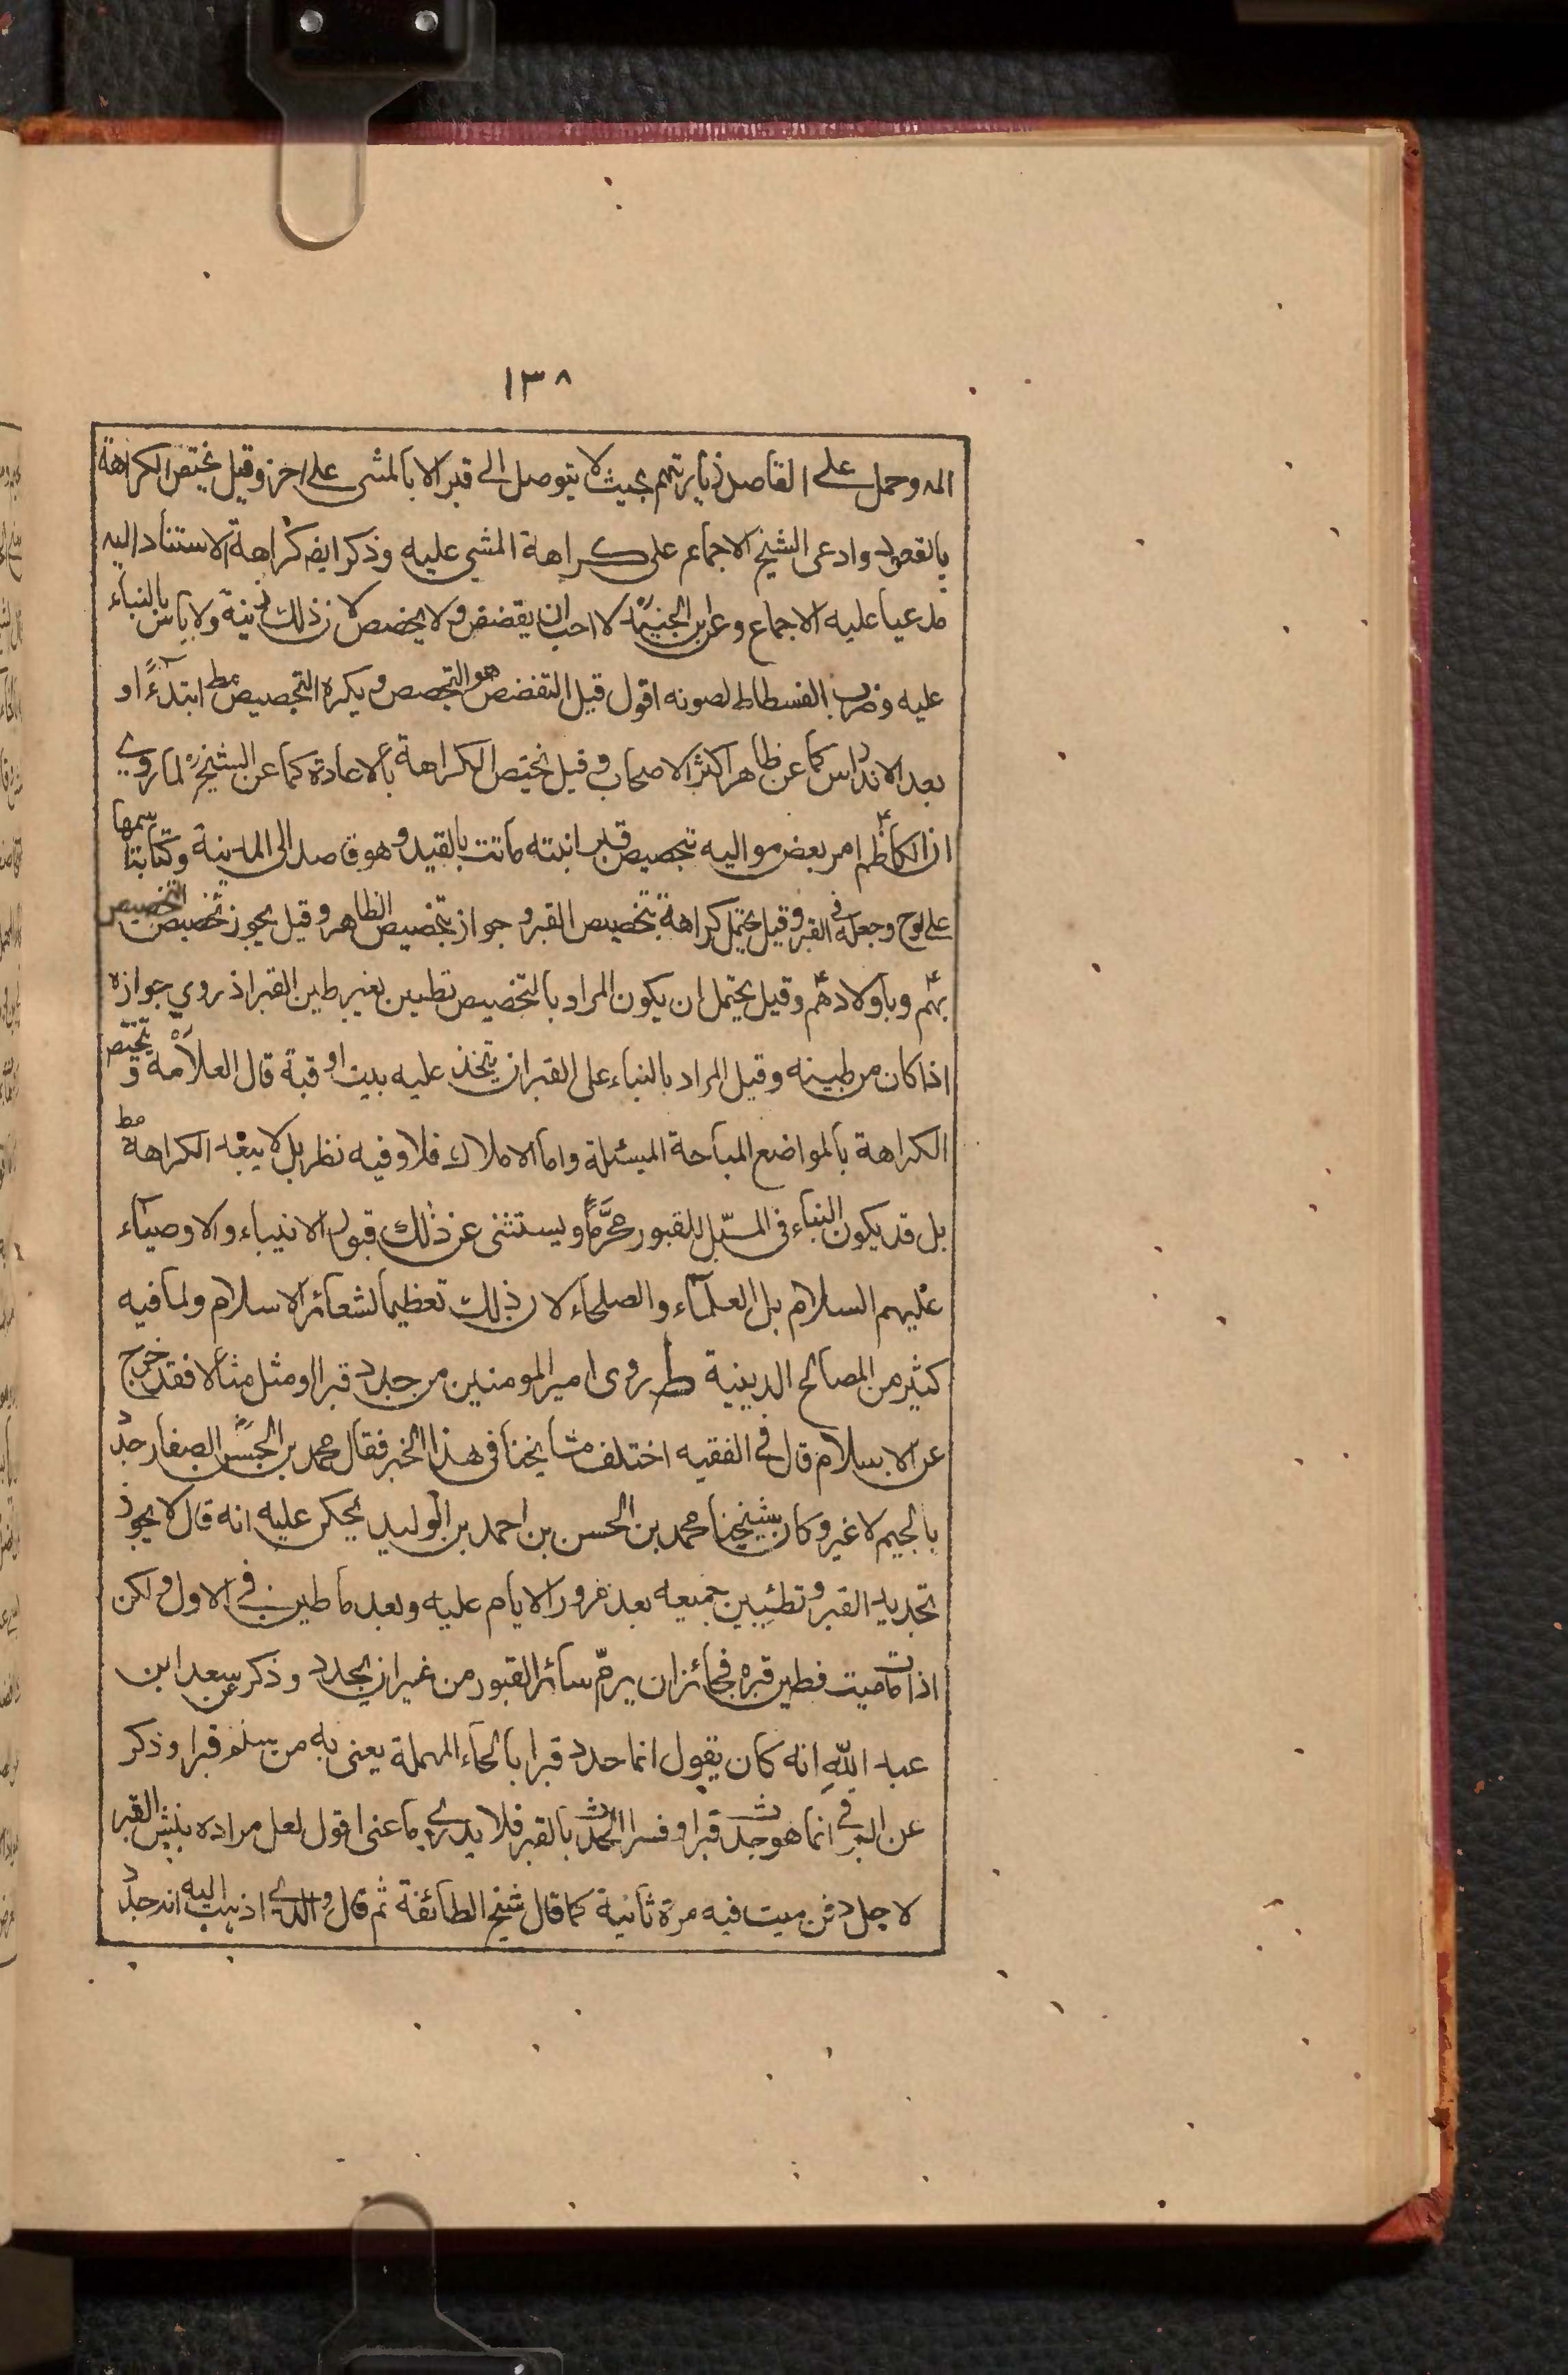 ١٣٨
المه وحمل على القاصد زيارتهم بحيث لا يتوصل الى قبر الا بالمشى على اخر وقيل يختص الكراهة
بالقعود وادعى الشيخ الاجماع على كراهة المشي عليه وذكر ايضه كراهة الاستناد اليه
مدعيا عليه الاجماع وعن ابن الجنيد لا احب ان يقضض ولا يجصص لان ذلك زينة ولا باس بالبناء
عليه وضرب الفسطاط لصونه اقول قيل التقضض هو التجصص ويكره التجصيص مط ابتدءً او
بعد الاندراس كما عن ظاهر اكثر الاصحاب وقيل يختص الكراهة بالاعادة كما عن الشيخ ره لما روي
ان الكاظم ع امر بعض مواليه بتجصيص قبر ابنته ماتت بالفيد وهو قاصد الى المدينة وكتابة اسمها
على لوح وجعله في القبر وقيل يحتمل كراهة تجصيص القبر وجواز تجصيص الظاهر وقيل يجوز تخصيص التجصيص
بهم ع وباولادهم ع وقيل يحتمل ان يكون المراد بالتجصيص تطيين بغير طين القبر اذ روي جوازه
اذا كان من طينه وقيل المراد بالبناء على القبر ان يتخذ عليه بيت او قبة قال العلامة ره وتختص
الكراهة بالمواضع المباحة المسبلة واما الاملاك فلا وفيه نظر بل لا يبعد الكراهة مط
بل قد يكون البناء فى المسبّل للقبور محرّما ويستثنى عن ذلك قبور الانبياء والاوصياء
عليهم السلام بل العلماء والصلحاء لان ذلك تعظيما لشعائر الاسلام ولما فيه
كثير من المصالح الدينية ط روى امير المومنين من جدد قبرا او مثل مثالا فقد خرج
عن الاسلام قال في الفقيه اختلف مشايخنا فى هذا الخبر فقال محمد بن الحسن الصفار جدد
بالجيم لا غير وكان شيخنا محمد بن الحسن بن احمد بن الوليد يحكى عليه انه قال لا يجوز
تجديد القبر وتطيين جميعه بعد مرور الايام عليه وبعد ما طين في الاول ولكن
اذا مات ميت فطين قبره فجائز ان يرمّ سائر القبور من غير ان يجدد وذكر عن سعد ابن
عبد الله انه كان يقول انما حدد قبرا بالحاء المهملة يعنى به من سنم قبرا وذكر
عن البرقي انما هو جدث قبرا وفسر الجدث بالقبر فلا يدرى ما عنى اقول لعل مراده بنبش القبر
لاجل دفن ميت فيه مرة ثانية كما قال شيخ الطائفة ثم قال والذي اذهب اليه انه جدد